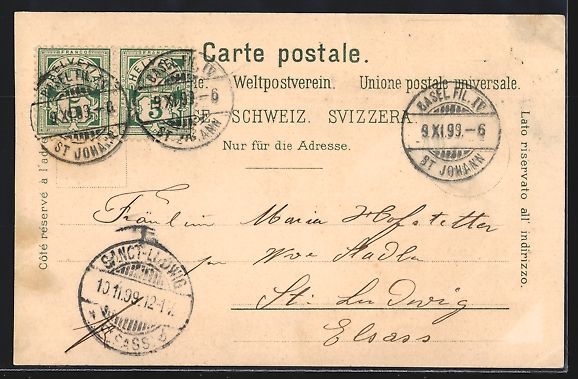 Carte postale.
Weltpostverein. Unione postale universale.
SCHWEIZ. SVIZZERA.
Nur für die Adresse.
Côté réservé à l'ad
Lato riservato all' indirizzo.
FRANCO
HELVETIA
5
FRANCO
HELVETIA
5
BASEL FIL. IV
9 XI.99.-6
ST JOHANN
BASEL FIL. IV
9 XI.99.-6
ST JOHANN
BASEL FIL. IV
9 XI.99.-6
ST JOHANN
T
SANCT-LUDWIG
10.11.99.12-1
ELSASS
Fräulein Maria Hofstetter
Wwe Stadler
St. Ludwig
Elsass